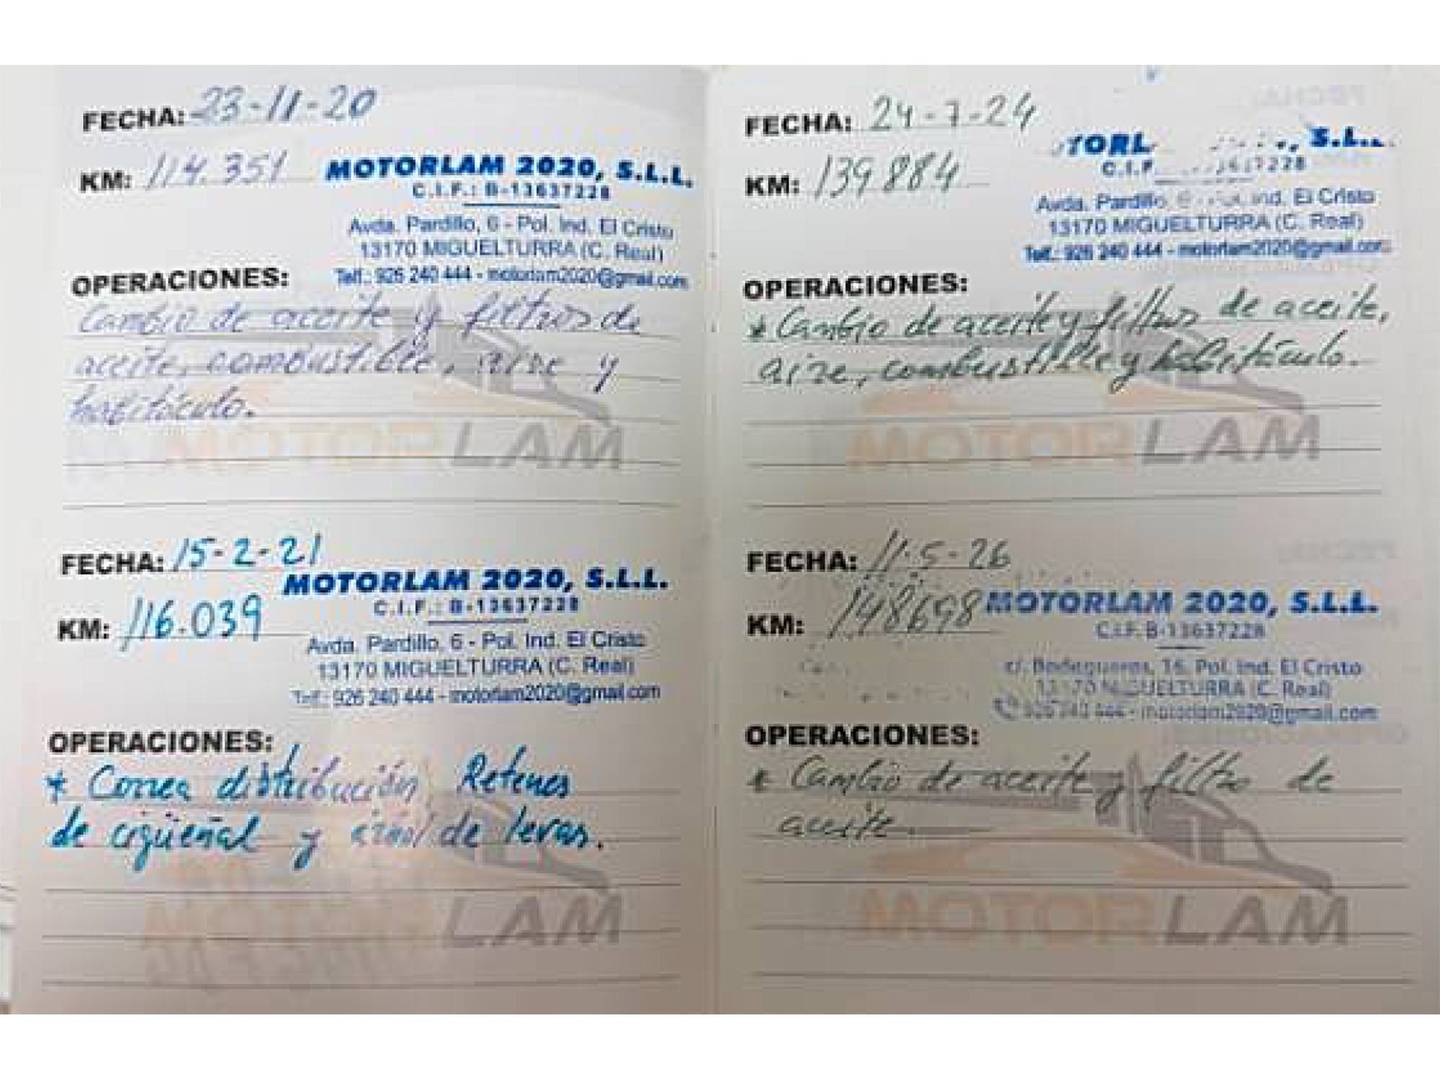 FECHA: 23-11-20
KM: 114.351
MOTORLAM 2020, S.L.L.
C.I.F.: B-13637228
Avda. Pardillo, 6 - Pol. Ind. El Cristo
13170 MIGUELTURRA (C. Real)
Telf.: 926 240 444 - motorlam2020@gmail.com
OPERACIONES:
Cambio de aceite y filtros de
aceite, combustible, aire y
habitáculo.
MOTORLAM
FECHA: 15-2-21
KM: 116.039
MOTORLAM 2020, S.L.L.
C.I.F.: B-13637228
Avda. Pardillo, 6 - Pol. Ind. El Cristo
13170 MIGUELTURRA (C. Real)
Telf.: 926 240 444 - motorlam2020@gmail.com
OPERACIONES:
* Correa distribución, Retenes
de cigüeñal y árbol de levas.
MOTORLAM
FECHA: 24-7-24
KM: 139884
TORL S.L.L.
C.I.F. 13637228
Avda. Pardillo, 6 - Pol. Ind. El Cristo
13170 MIGUELTURRA (C. Real)
Telf.: 926 240 444 - motorlam2020@gmail.com
OPERACIONES:
* Cambio de aceite y filtros de aceite,
aire, combustible y habitáculo.
MOTORLAM
FECHA: 11-5-26
KM: 148698
MOTORLAM 2020, S.L.L.
C.I.F. B-13637228
c/. Bodegueros, 16. Pol. Ind. El Cristo
13170 MIGUELTURRA (C. Real)
926 240 444 - motorlam2020@gmail.com
OPERACIONES:
* Cambio de aceite y filtro de
aceite.
MOTORLAM